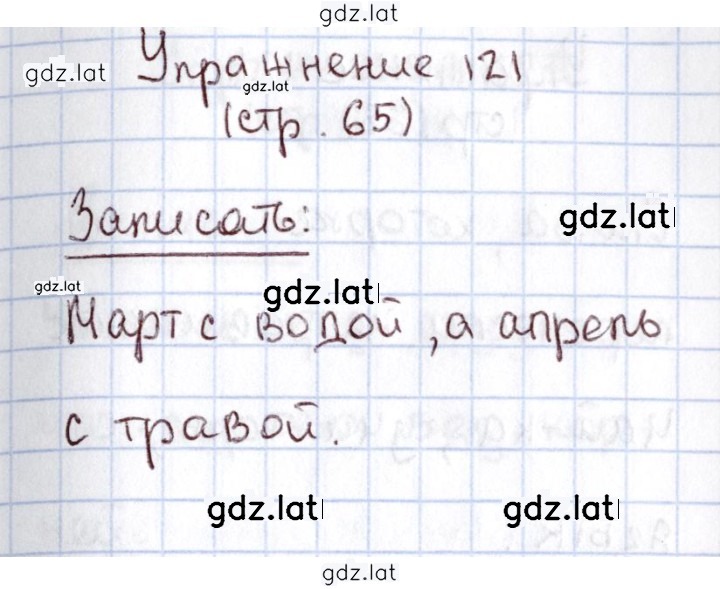 gdz.lat
Упражнение 121
gdz.lat
gdz.lat
(стр. 65)
Записать:
gdz.lat
gdz.lat
gdz.lat
Март с водой, а апрель
с травой.
gdz.lat
gdz.lat
gdz.lat